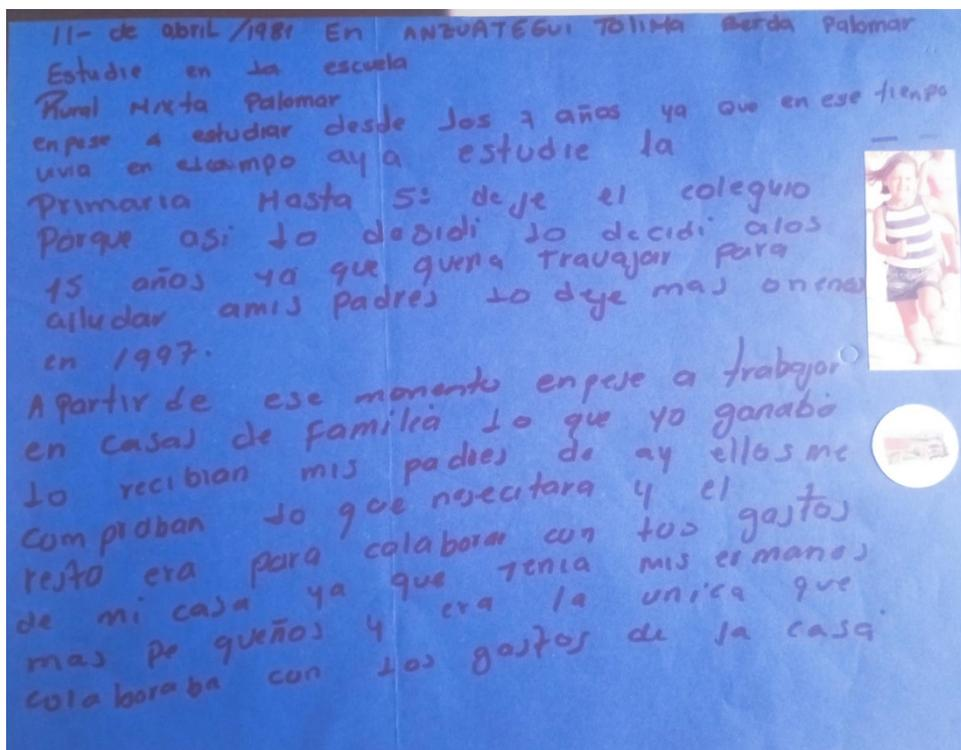 11- de abril /1981 En ANZUATEGUI TOLIMA Berda Palomar
Estudie en la escuela
Rural Mixta Palomar
enpese a estudiar desde los 7 años ya que en ese tienpo
uvia en elcampo aya estudie la
Primaria Hasta 5º deje el coleguio
Porque asi lo desidi lo decidi alos
15 años ya que queria travajar para
alludar amis padres lo deje mas omenos
en 1997.
A partir de ese momento enpese a trabajar
en casas de familia lo que yo ganaba
lo recibian mis padres de ay ellos me
comproban lo que nesecitara y el
resto era para colaborar con los gastos
de mi casa ya que tenia mis ermanos
mas pequeños y era la unica que
colaboraba con los gastos de la casa